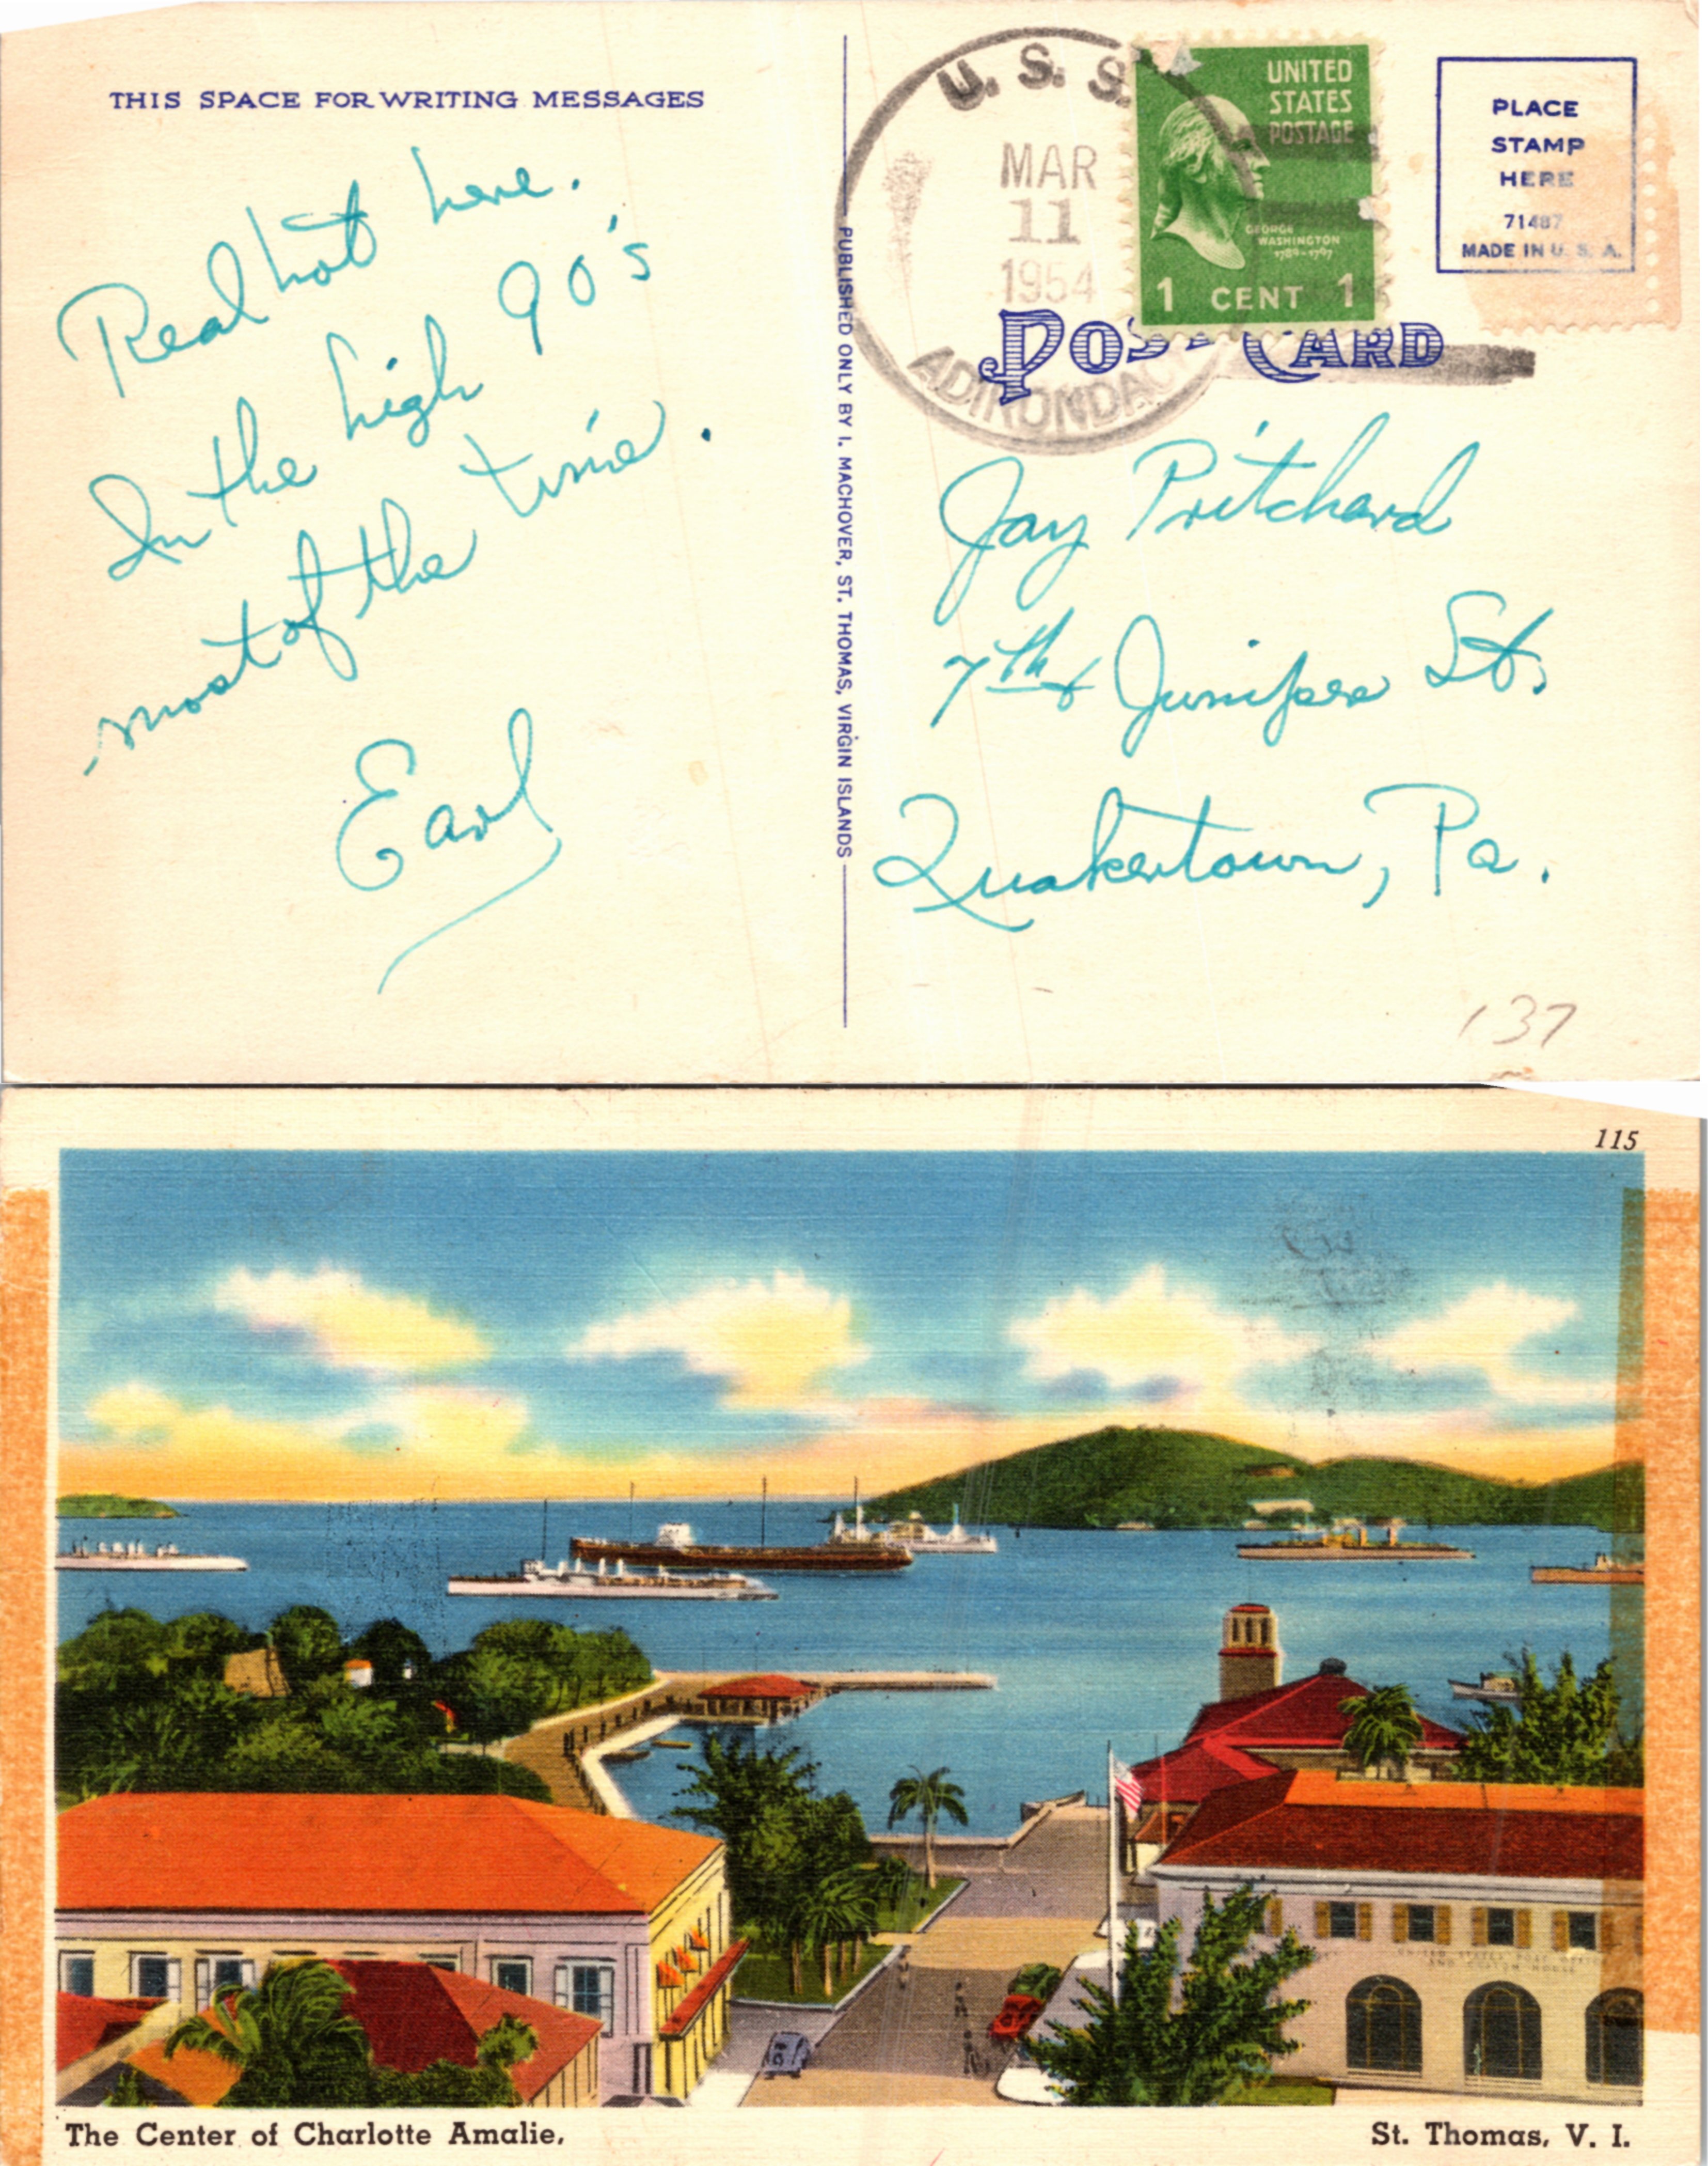 THIS SPACE FOR WRITING MESSAGES
Real hot here.
In the high 90's
most of the time.
Earl
PUBLISHED ONLY BY I. MACHOVER, ST. THOMAS, VIRGIN ISLANDS
U. S. S.
MAR
11
1954
ADIRONDAC
UNITED
STATES
POSTAGE
GEORGE
WASHINGTON
1789-1797
1 CENT 1
PLACE
STAMP
HERE
71487
MADE IN U. S. A.
POST CARD
Jay Pritchard
7th & Juniper St.
Quakertown, Pa.
137
115
UNITED STATES POST OFFICE
AND CUSTOM HOUSE
The Center of Charlotte Amalie,
St. Thomas, V. I.